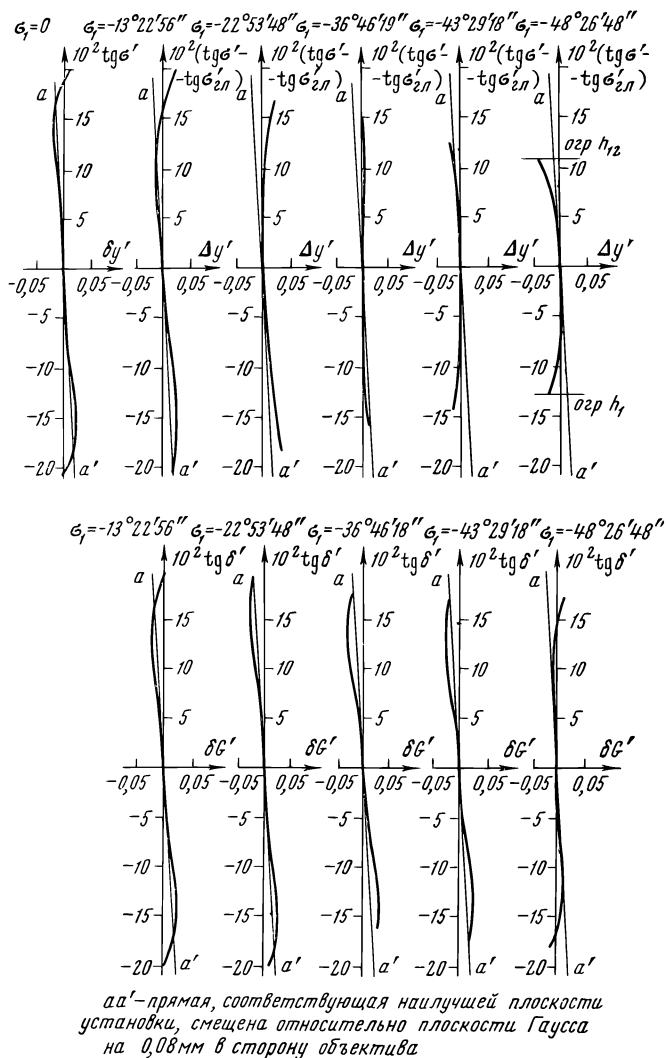 σ₁=0 σ₁=-13°22'56" σ₁=-22°53'48" σ₁=-36°46'19" σ₁=-43°29'18" σ₁=-48°26'48"
10² tgσ' 10²(tgσ'- 10²(tgσ'- 10²(tgσ'- 10²(tgσ'- 10²(tgσ'-
-tgσ'гл) -tgσ'гл) -tgσ'гл) -tgσ'гл) -tgσ'гл)
a a a a a a
15 15 15 15 15 15
огр h₁₂
10 10 10 10 10 10
5 5 5 5 5 5
δy' Δy' Δy' Δy' Δy' Δy'
-0,05 0,05 -0,05 0,05 -0,05 0,05 -0,05 0,05 -0,05 0,05 -0,05 0,05
-5 -5 -5 -5 -5 -5
-10 -10 -10 -10 -10 -10
огр h₁
-15 -15 -15 -15 -15 -15
-20 a' -20 a' -20 a' -20 a' -20 a' -20 a'
σ₁=-13°22'56" σ₁=-22°53'48" σ₁=-36°46'18" σ₁=-43°29'18" σ₁=-48°26'48"
10² tgδ' 10² tgδ' 10² tgδ' 10² tgδ' 10² tgδ'
a a a a a
15 15 15 15 15
10 10 10 10 10
5 5 5 5 5
δG' δG' δG' δG' δG'
-0,05 0,05 -0,05 0,05 -0,05 0,05 -0,05 0,05 -0,05 0,05
-5 -5 -5 -5 -5
-10 -10 -10 -10 -10
-15 -15 -15 -15 -15
-20 a' -20 a' -20 a' -20 a' -20 a'
aa'-прямая, соответствующая наилучшей плоскости
установки, смещена относительно плоскости Гаусса
на 0,08мм в сторону объектива